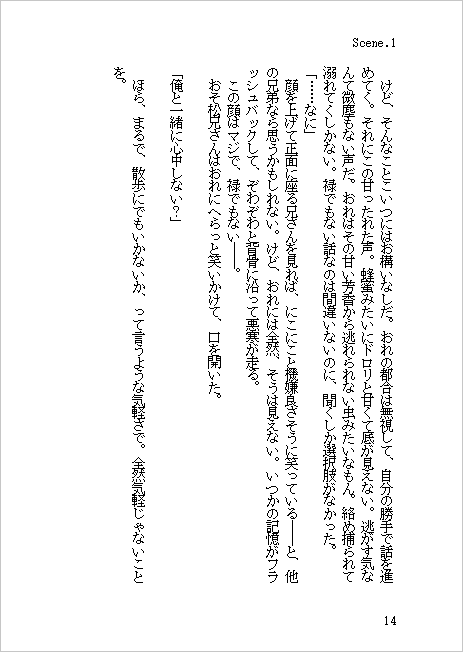 Scene.1
けど、そんなことこいつにはお構いなしだ。おれの都合は無視して、自分の勝手で話を進
めてく。それにこの甘ったれた声。蜂蜜みたいにドロリと甘くて底が見えない。逃がす気な
んて微塵もない声だ。おれはその甘い芳香から逃れられない虫みたいなもん。絡め捕られて
溺れてくしかない。禄でもない話なのは間違いないのに、聞くしか選択肢がなかった。
「……なに」
顔を上げて正面に座る兄さんを見れば、にこにこと機嫌良さそうに笑っている――と、他
の兄弟なら思うかもしれない。けど、おれには全然、そうは見えない。いつかの記憶がフラ
ッシュバックして、ぞわぞわと背骨に沿って悪寒が走る。
この顔はマジで、禄でもない――。
おそ松兄さんはおれにへらっと笑いかけて、口を開いた。
「俺と一緒に心中しない?」
ほら、まるで、散歩にでもいかないか、って言うような気軽さで。全然気軽じゃないこと
を。
14